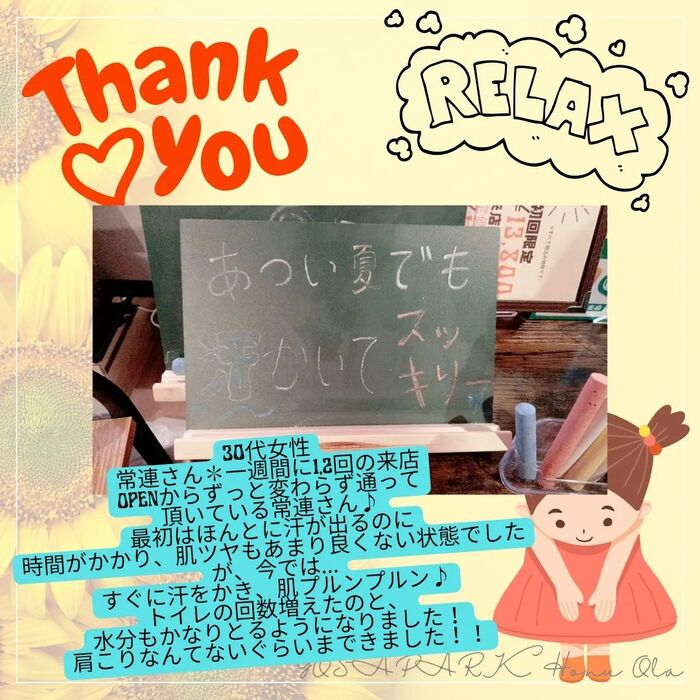 Thank
You
RELAX
初回限定
13,800
あつい夏でも
汗かいて
スッ
キリー
30代女性
常連さん＊一週間に1,2回の来店
OPENからずっと変わらず通って
頂いている常連さん♪
最初はほんとに汗が出るのに
時間がかかり、肌ツヤもあまり良くない状態でした
が、今では...
すぐに汗をかき、肌プルンプルン♪
トイレの回数増えたのと、
水分もかなりとるようになりました！
肩こりなんてないぐらいまできました！！
YOSAPARK Honu Ola